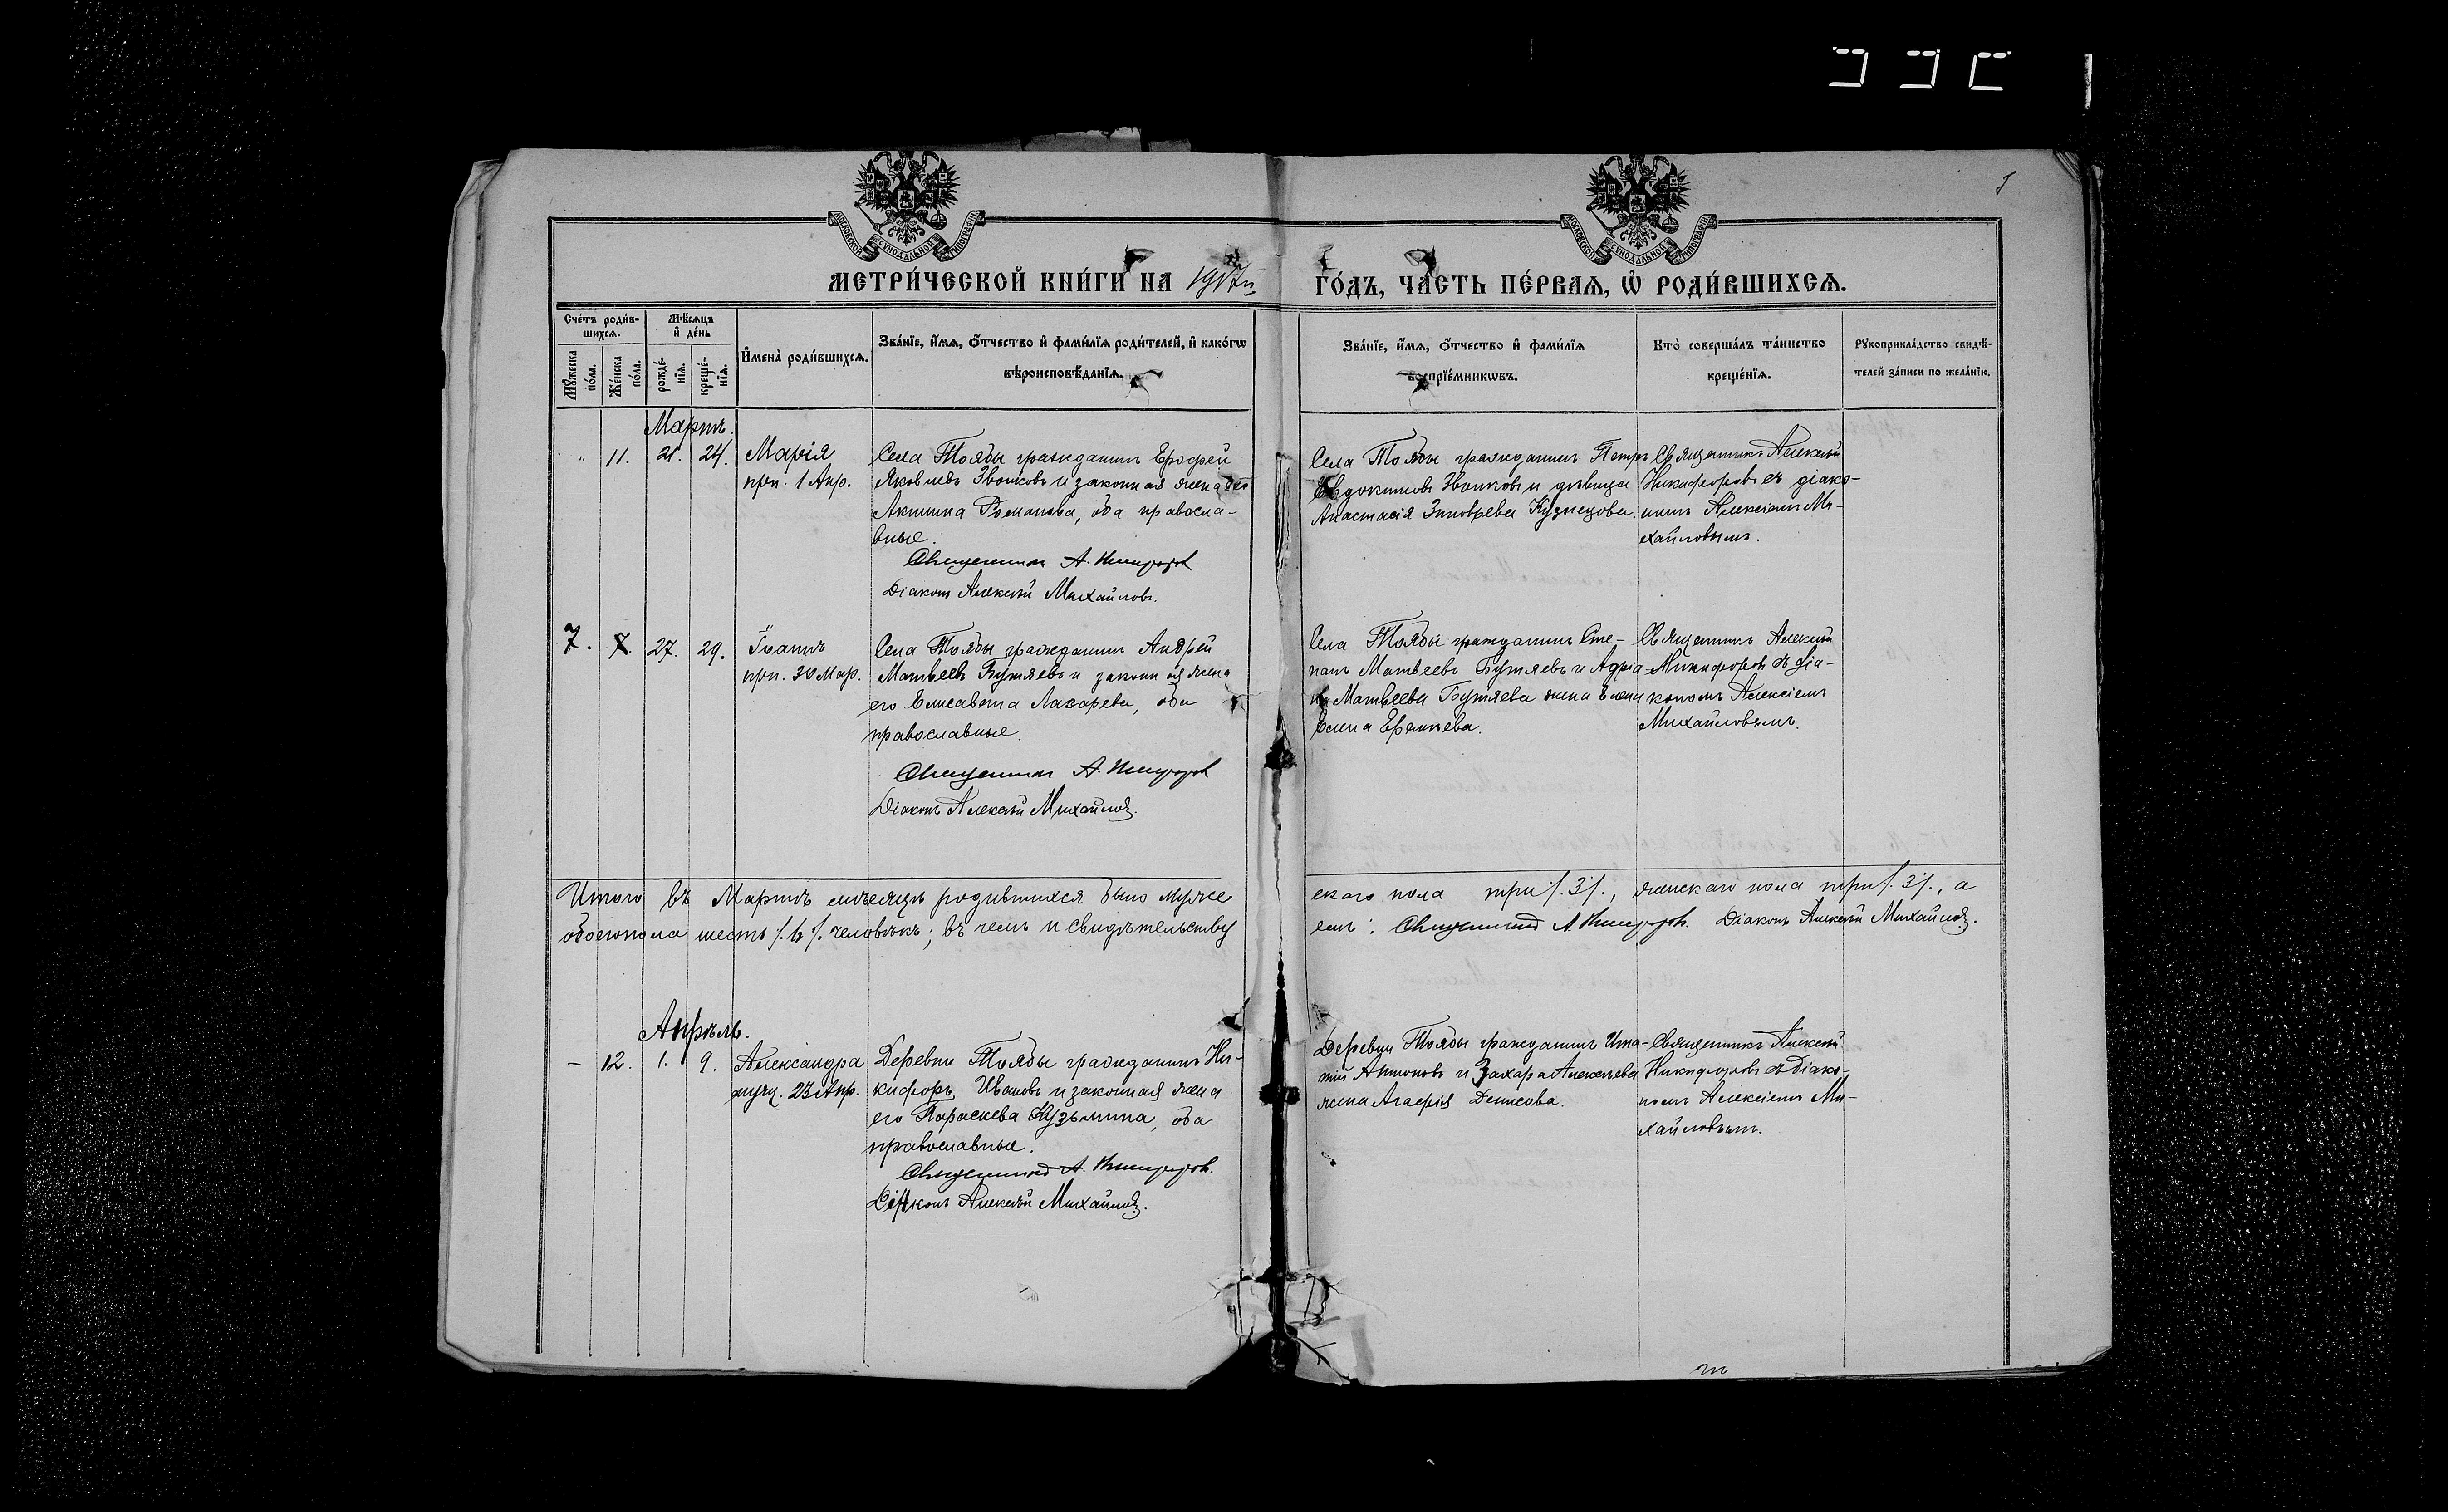 МОСКОВСКОЙ СУНОДАЛЬНОЙ ТИПОГРАФІИ
МОСКОВСКОЙ СУНОДАЛЬНОЙ ТИПОГРАФІИ
МЕТРИ́ЧЕСКОЙ КНИ́ГИ НА 1917й ГО́ДЪ, ЧА́СТЬ ПЕ́РВАЯ, Ѡ҆ РОДИ́ВШИХСѦ.
Сче́тъ роди́в-
шихсѧ.
Мѹ́жеска по́ла.
Же́нска по́ла.
Мѣ́сѧцъ и҆ де́нь
рожде́-
нїѧ.
креще́-
нїѧ.
И҆мена̀ роди́вшихсѧ.
Зва́нїе, и҆́мѧ, ѻ҆́тчество и҆ фами́лїѧ роди́телей, и҆ како́гѡ
вѣроисповѣ́данїѧ.
Зва́нїе, и҆́мѧ, ѻ҆́тчество и҆ фами́лїѧ
воспрїе́мникѡвъ.
Кто̀ соверша́лъ та́инство
креще́нїѧ.
Рѹкоприкла́дство свидѣ́-
телей за́писи по жела́нїю.
Мартъ.
11. 21. 24. Марія
прп. 1 Апр.
Села Тоябы гражданинъ Ерофей
Яковлевъ Звонковъ и законная жена его
Акилина Романова, оба правосла-
вные.
Священникъ А. Никифоровъ
Діаконъ Алексѣй Михайловъ.
Села Тоябы гражданинъ Петръ
Евдокимовъ Звонковъ и дѣвица
Анастасія Зиновьева Кузнецова.
Священникъ Алексѣй
Никифоровъ съ діако-
номъ Алексіемъ Ми-
хайловымъ.
7. 7. 27. 29. Іоаннъ
прп. 30 Мар.
Села Тоябы гражданинъ Андрей
Матвеевъ Бутяевъ и законная жена
его Елисавета Лазарева, оба
православные.
Священникъ А. Никифоровъ
Діаконъ Алексѣй Михайловъ.
Села Тоябы гражданинъ Сте-
панъ Матвеевъ Бутяевъ и Адріа-
на Матвеева Бутяева жена Елена
Елена
Священникъ Алексѣй
Никифоровъ съ Діа-
кономъ Алексіемъ
Михайловымъ.
Итого въ Мартѣ мѣсяцѣ родившихся было муже
ского пола три /. 3 /., женскаго пола три /. 3 /., а
обоего пола шесть /. 6 /. человѣкъ; въ чемъ и свидѣтельству
емъ: Священникъ А. Никифоровъ. Діаконъ Алексѣй Михайловъ.
Апрѣль.
– 12. 1. 9. Александра
муч. 23 Апр.
Деревни Тоябы гражданинъ Ни-
кифоръ Ивановъ и законная жена
его Параскева Кузьмина, оба
православные.
Священникъ А. Никифоровъ.
Діаконъ Алексѣй Михайловъ.
Деревни Тоябы гражданинъ Игна-
тій Антоновъ и Захара Алексѣева
жена Агафія Денисова.
Священникъ Алексѣй
Никифоровъ съ Діако-
номъ Алексіемъ Ми-
хайловымъ.